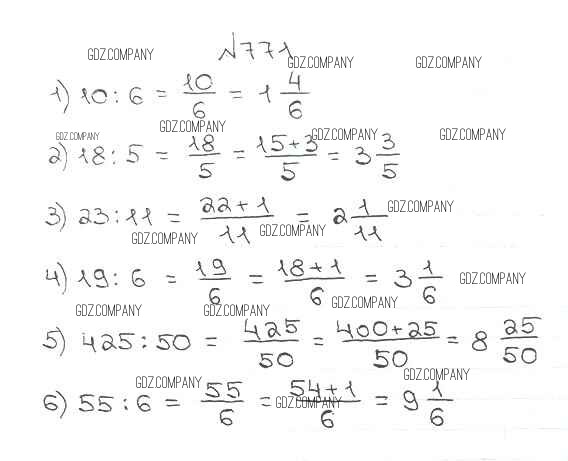 №771
GDZ.COMPANY GDZ.COMPANY GDZ.COMPANY
1) 10 : 6 = 10/6 = 1 4/6
GDZ.COMPANY GDZ.COMPANY GDZ.COMPANY GDZ.COMPANY
2) 18 : 5 = 18/5 = 15+3/5 = 3 3/5
GDZ.COMPANY
3) 23 : 11 = 22+1/11 = 2 1/11
GDZ.COMPANY GDZ.COMPANY
4) 19 : 6 = 19/6 = 18+1/6 = 3 1/6
GDZ.COMPANY
GDZ.COMPANY GDZ.COMPANY GDZ.COMPANY
5) 425 : 50 = 425/50 = 400+25/50 = 8 25/50
GDZ.COMPANY GDZ.COMPANY
6) 55 : 6 = 55/6 = 54+1/6 = 9 1/6
GDZ.COMPANY